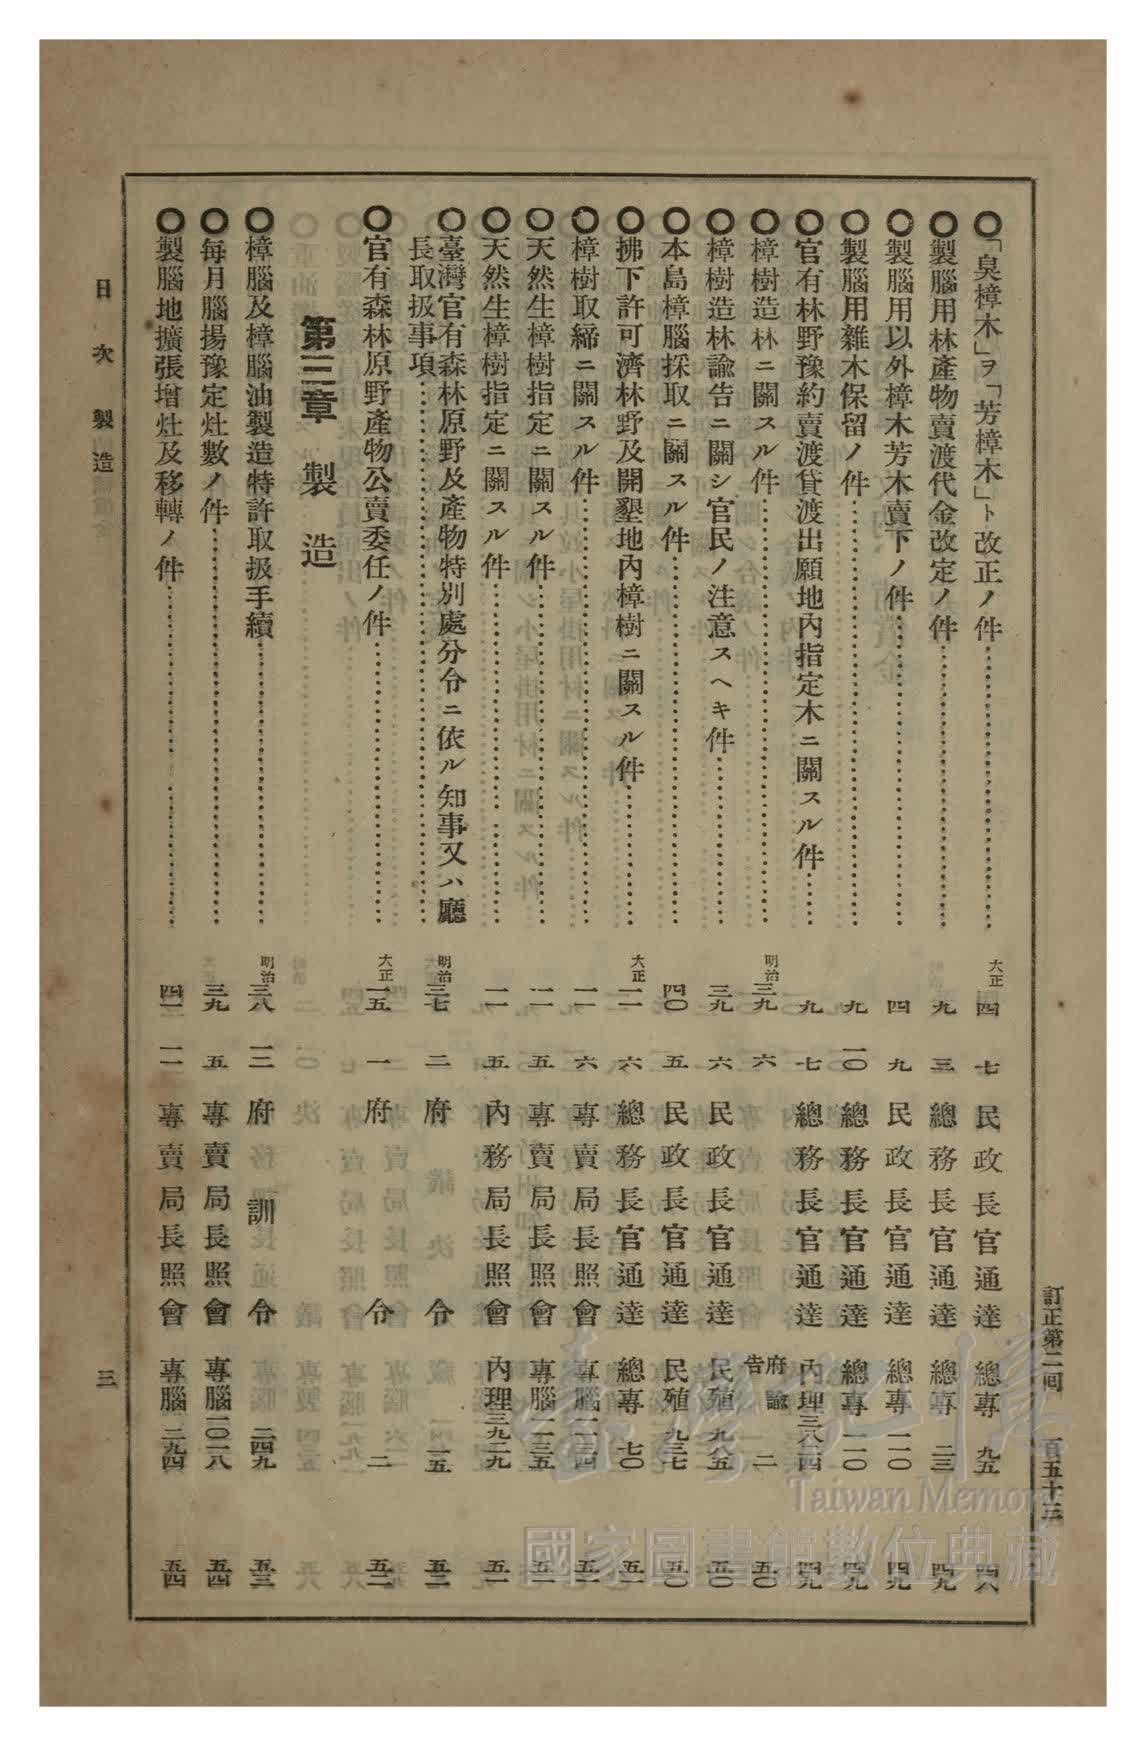 訂正第二回 百五十三
○「臭樟木」ヲ「芳樟木」ト改正ノ件………… 大正四 七 民政長官通達 總專 九五 四八
○製腦用林產物賣渡代金改定ノ件………… 九 三 總務長官通達 總專 二三 四九
○製腦用以外樟木芳木賣下ノ件………… 四 九 民政長官通達 總專 一一〇 四九
○製腦用雜木保留ノ件………… 九 一〇 總務長官通達 總專 一一〇 四九
○官有林野豫約賣渡貸渡出願地內指定木ニ關スル件…… 九 七 總務長官通達 內理三八二四 四九
○樟樹造林ニ關スル件………… 明治三九 六 府諭告 二 五〇
○樟樹造林諭告ニ關シ官民ノ注意スヘキ件………… 三九 六 民政長官通達 民殖九八五 五〇
○本島樟腦採取ニ關スル件………… 四〇 五 民政長官通達 民殖九三七 五〇
○拂下許可濟林野及開墾地內樟樹ニ關スル件………… 大正一一 六 總務長官通達 總專 七〇 五一
○樟樹取締ニ關スル件………… 一一 六 專賣局長照會 專腦一一三四 五一
○天然生樟樹指定ニ關スル件………… 一一 五 專賣局長照會 專腦一一三五 五一
○天然生樟樹指定ニ關スル件………… 一一 五 內務局長照會 內理三九二九 五一
○臺灣官有森林原野及產物特別處分令ニ依ル知事又ハ廳
長取扱事項………… 明治三七 二 府令 一五 五二
○官有森林原野產物公賣委任ノ件………… 大正一五 一 府令 二 五二
第三章 製造
○樟腦及樟腦油製造特許取扱手續………… 明治三八 一二 府訓令 二四九 五三
○每月腦揚豫定灶數ノ件………… 三九 五 專賣局長照會 專腦二〇一八 五四
○製腦地擴張增灶及移轉ノ件………… 四二 一一 專賣局長照會 專腦 二九四 五四
目次 製造 三
臺灣記憶
Taiwan Memory
國家圖書館數位典藏